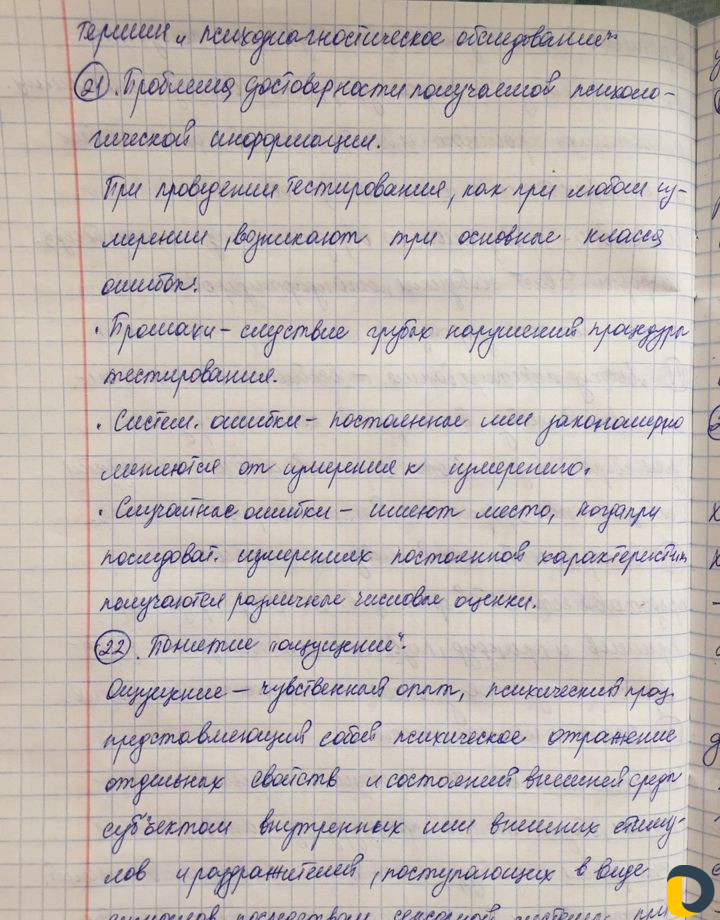 термин „ психодиагностическое обследование“
21. Проблема достоверности получаемой психоло-
гической информации.
При проведении тестирования, как при любом из-
мерении, возникают три основные класса
ошибок:
• Промахи – следствие грубых нарушений процедуры
тестирования.
• Систем. ошибки – постоянные или закономерно
меняются от измерения к измерению.
• Случайные ошибки – имеют место, когда при
последоват. измерениях постоянной характеристик
получаются различные числовые оценки.
22. Понятие „ощущение“.
Ощущение – чувственный опыт, психический проц.
представляющий собой психическое отражение
отдельных свойств и состояний внешней среды
субъектом внутренних или внешних стиму-
лов и раздражителей, поступающих в виде